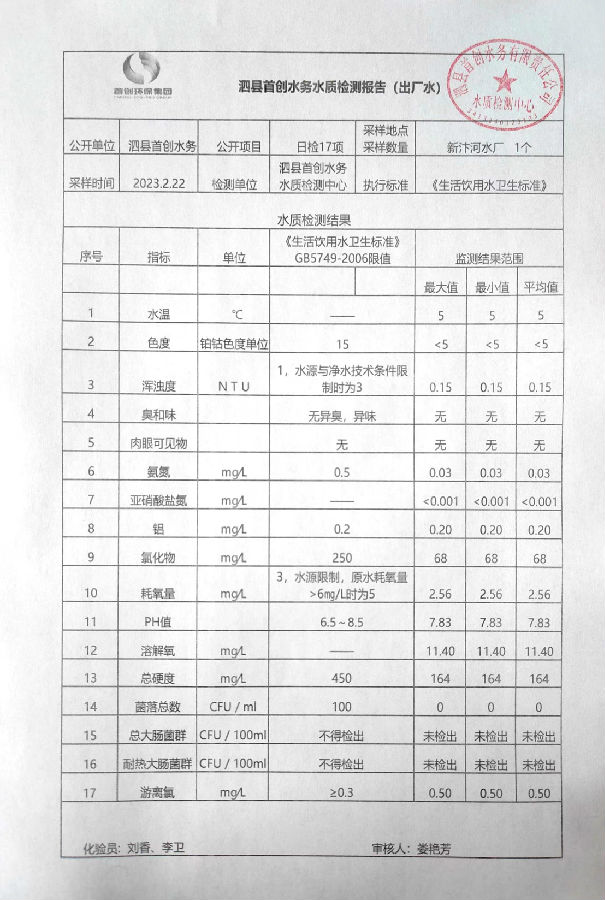 首创环保集团
泗县首创水务水质检测报告（出厂水）
泗县首创水务有限责任公司
水质检测中心
公开单位 泗县首创水务 公开项目 日检17项 采样地点 采样数量 新汴河水厂 1个
采样时间 2023.2.22 检测单位 泗县首创水务 水质检测中心 执行标准 《生活饮用水卫生标准》
水质检测结果
序号 指标 单位 《生活饮用水卫生标准》 GB5749-2006限值 监测结果范围
最大值 最小值 平均值
1 水温 ℃ —— 5 5 5
2 色度 铂钴色度单位 15 <5 <5 <5
3 浑浊度 NTU 1，水源与净水技术条件限制时为3 0.15 0.15 0.15
4 臭和味 无异臭，异味 无 无 无
5 肉眼可见物 无 无 无 无
6 氨氮 mg/L 0.5 0.03 0.03 0.03
7 亚硝酸盐氮 mg/L —— <0.001 <0.001 <0.001
8 铝 mg/L 0.2 0.20 0.20 0.20
9 氯化物 mg/L 250 68 68 68
10 耗氧量 mg/L 3，水源限制，原水耗氧量>6mg/L时为5 2.56 2.56 2.56
11 PH值 6.5～8.5 7.83 7.83 7.83
12 溶解氧 mg/L —— 11.40 11.40 11.40
13 总硬度 mg/L 450 164 164 164
14 菌落总数 CFU / ml 100 0 0 0
15 总大肠菌群 CFU / 100ml 不得检出 未检出 未检出 未检出
16 耐热大肠菌群 CFU / 100ml 不得检出 未检出 未检出 未检出
17 游离氯 mg/L ≥0.3 0.50 0.50 0.50
化验员：刘香、李卫 审核人：娄艳芳